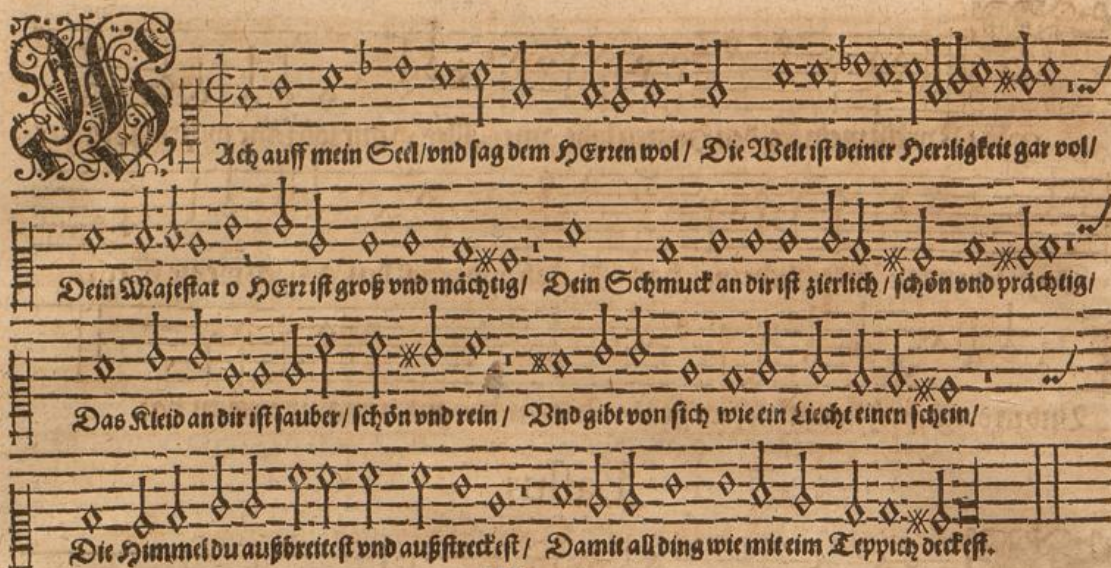 WAch auff mein Seel/vnd sag dem HErren wol/ Die Welt ist deiner Herrligkeit gar vol/
Dein Majestat o HErr ist groß vnd mächtig/ Dein Schmuck an dir ist zierlich/schön vnd prächtig/
Das Kleid an dir ist sauber/schön vnd rein/ Vnd gibt von sich wie ein Liecht einen schein/
Die Himmel du außbreitest vnd außstreckest/ Damit all ding wie mit eim Teppich deckest.